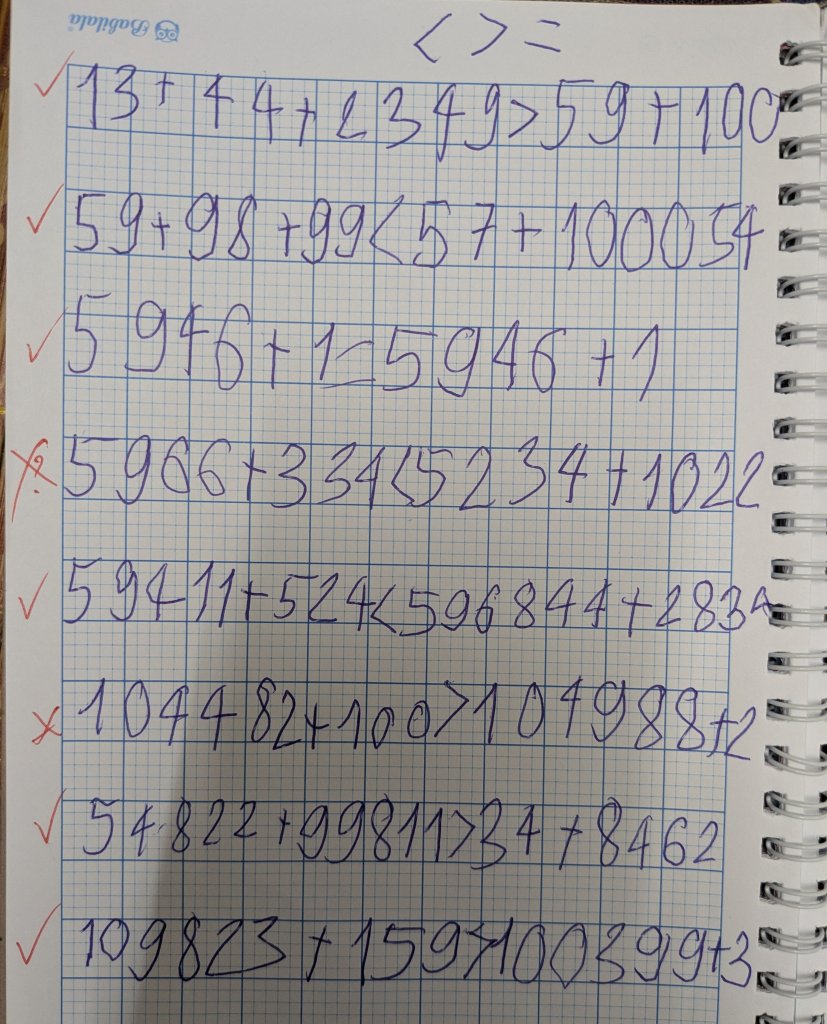 Babilala
< > =
13+44+2349>59+100
59+98+99<57+100054
5946+1=5946+1
5966+334<5234+1022
59411+524<596844+2834
104482+100>104988+2
54822+99811>34+8462
109823+159>100399+3